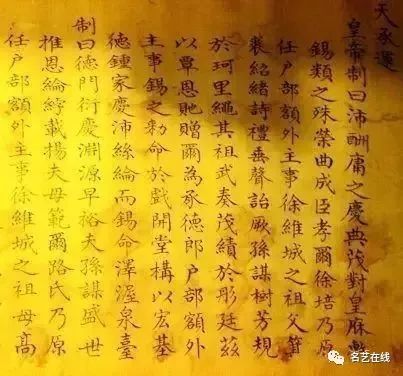 天承運
皇帝制曰沛酬庸之慶典茂對皇庥
錫類之殊榮曲成臣孝爾徐培乃原
任戶部額外主事徐維城之祖父箕
裘紹緒詩禮垂聲詒厥孫謀樹芳規
於珂里繩其祖武奏茂績於彤廷茲
以覃恩貤贈爾為承德郎戶部額外
主事錫之勅命於戲開堂構以宏基
德鍾家慶沛絲綸而錫命澤渥泉臺
制曰德門衍慶淵源早裕夫孫謀盛世
推恩綸綍載揚夫母範爾路氏乃原
任戶部額外主事徐維城之祖母高
名艺在线